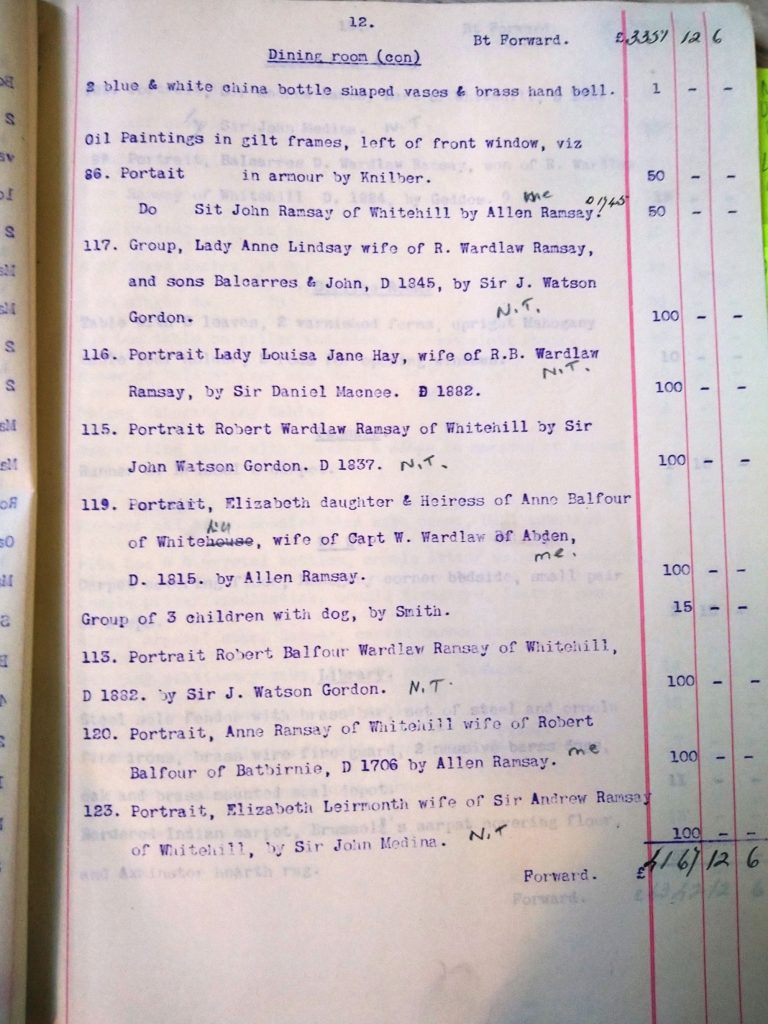 12.
Bt Forward. £3351 12 6
Dining room (con)
2 blue & white china bottle shaped vases & brass hand bell. 1 - -
Oil Paintings in gilt frames, left of front window, viz
86. Portait in armour by Knilber. 50 - -
me D 1745
Do Sit John Ramsay of Whitehill by Allen Ramsay. 50 - -
117. Group, Lady Anne Lindsay wife of R. Wardlaw Ramsay,
and sons Balcarres & John, D 1845, by Sir J. Watson
Gordon. N.T. 100 - -
116. Portrait Lady Louisa Jane Hay, wife of R.B. Wardlaw
N.T.
Ramsay, by Sir Daniel Macnee. D 1882. 100 - -
115. Portrait Robert Wardlaw Ramsay of Whitehill by Sir
John Watson Gordon. D 1837. N.T. 100 - -
119. Portrait, Elizabeth daughter & Heiress of Anne Balfour
of Whitehouse, wife of Capt W. Wardlaw of Abden,
me.
D. 1815. by Allen Ramsay. 100 - -
Group of 3 children with dog, by Smith. 15 - -
113. Portrait Robert Balfour Wardlaw Ramsay of Whitehill,
D 1882. by Sir J. Watson Gordon. N.T. 100 - -
120. Portrait, Anne Ramsay of Whitehill wife of Robert
Balfour of Batbirnie, D 1706 by Allen Ramsay. me 100 - -
123. Portrait, Elizabeth Leirmonth wife of Sir Andrew Ramsay
of Whitehill, by Sir John Medina. N.T 100 - -
Forward. £4167 12 6